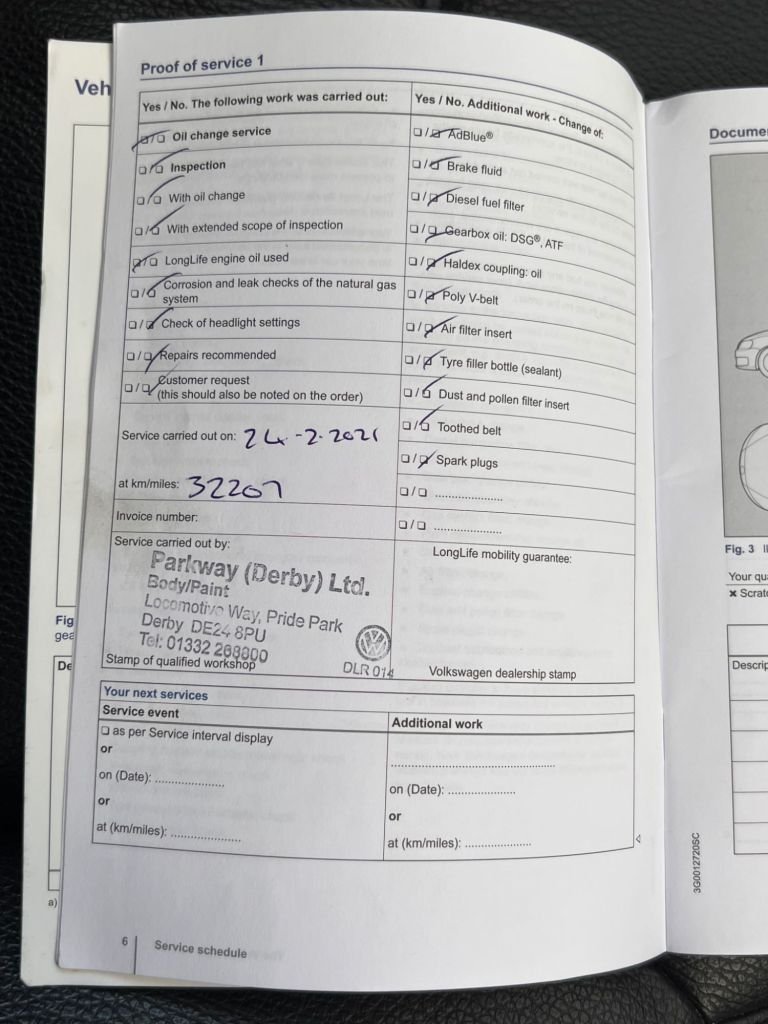 Veh
Proof of service 1
Yes / No. The following work was carried out:
☐/☐ Oil change service
☐/☐ Inspection
☐/☐ With oil change
☐/☐ With extended scope of inspection
☐/☐ LongLife engine oil used
☐/☐ Corrosion and leak checks of the natural gas
system
☐/☐ Check of headlight settings
☐/☐ Repairs recommended
☐/☐ Customer request
(this should also be noted on the order)
Service carried out on: 24.-2.2021
at km/miles: 32207
Invoice number:
Service carried out by:
Parkway (Derby) Ltd.
Body/Paint
Locomotive Way, Pride Park
Derby DE24 8PU
Tel: 01332 268800
DLR 014
Stamp of qualified workshop
Yes / No. Additional work - Change of:
☐/☐ AdBlue®
☐/☐ Brake fluid
☐/☐ Diesel fuel filter
☐/☐ Gearbox oil: DSG®, ATF
☐/☐ Haldex coupling: oil
☐/☐ Poly V-belt
☐/☐ Air filter insert
☐/☐ Tyre filler bottle (sealant)
☐/☐ Dust and pollen filter insert
☐/☐ Toothed belt
☐/☐ Spark plugs
☐/☐ ......................
☐/☐ ......................
LongLife mobility guarantee:
Volkswagen dealership stamp
Your next services
Service event
☐ as per Service interval display
or
on (Date): ......................
or
at (km/miles): ......................
Additional work
......................................................
on (Date): ......................
or
at (km/miles): ......................
6 Service schedule
Fig
gea
De
a)
Docume
Fig. 3
Your qua
× Scrat
Descrip
3G0012720SC